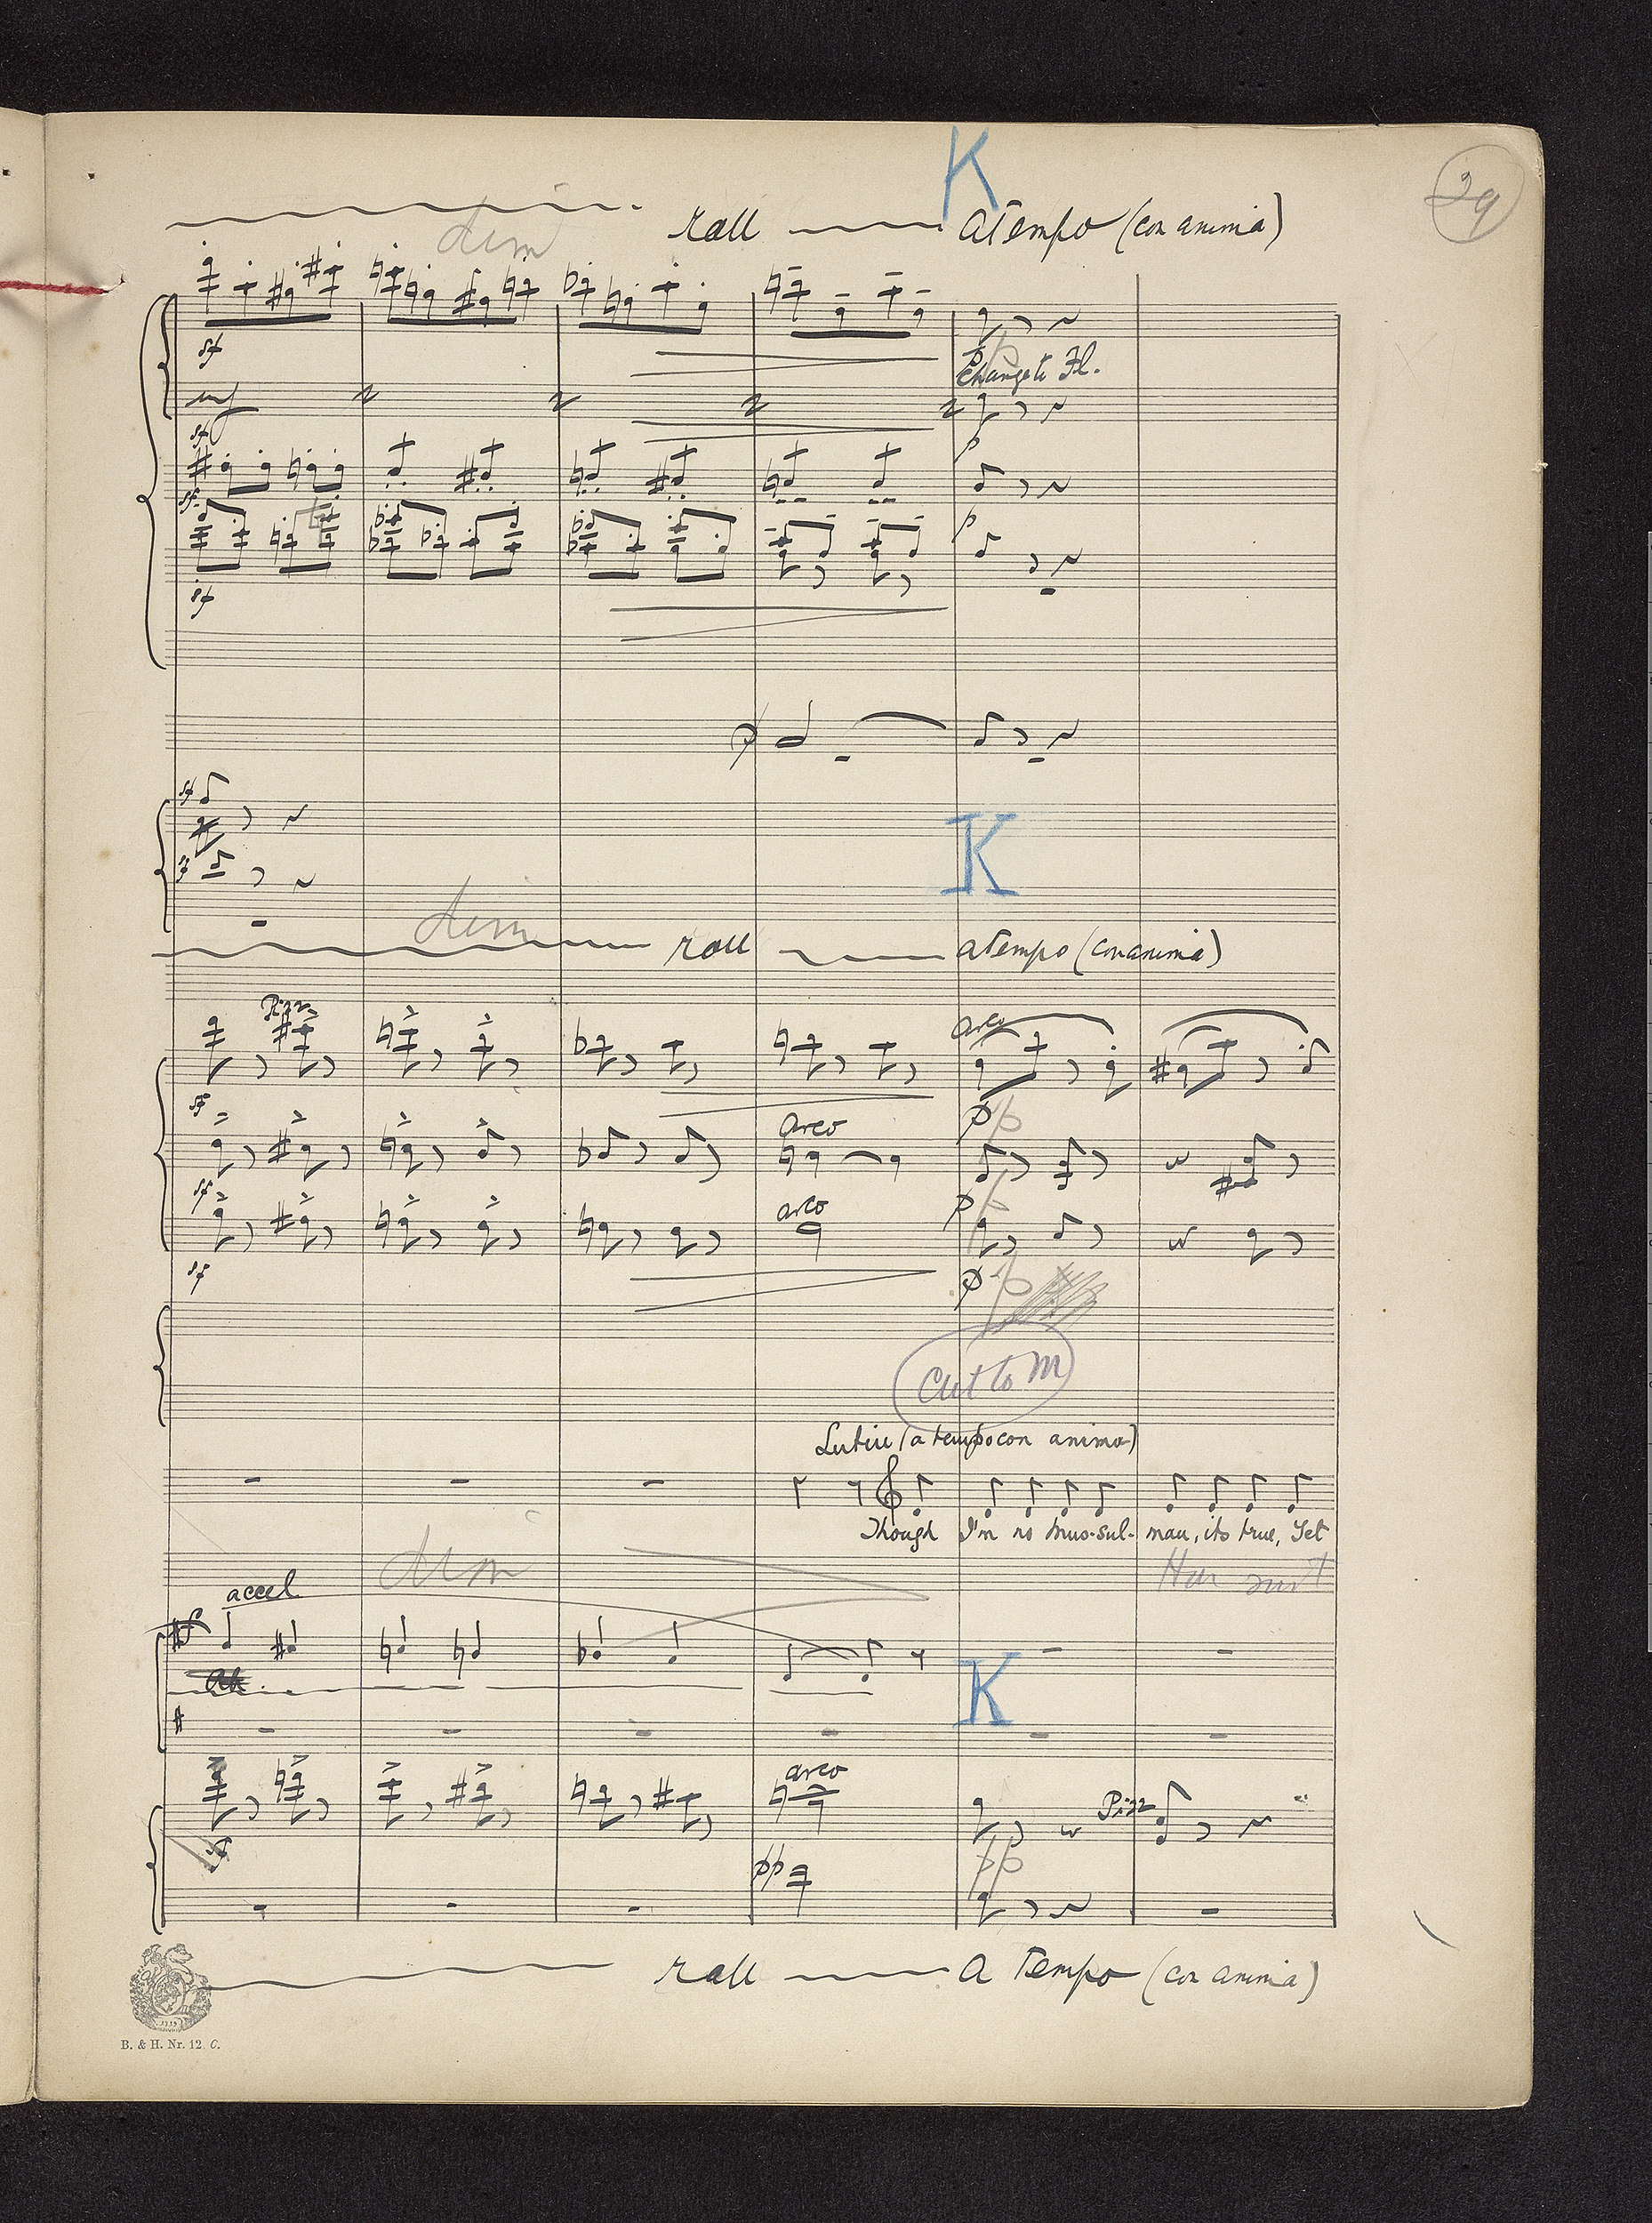 K
29
dim
rall
a Tempo (con anima)
sf
Change to Fl.
sf
p
sf
p
sf
p
sf
f
K
dim
rall
a Tempo (con anima)
Pizz
arco
sf
p
p
arco
sf
p
p
arco
sf
p
p
Cut to M
(a tempo con anima)
Though I'm no Mus-sul- man, its true, Yet
dim
accel
Ah
K
arco
Pizz
sf
pp
pp
rall
a Tempo (con anima)
B. & H. Nr. 12. C.